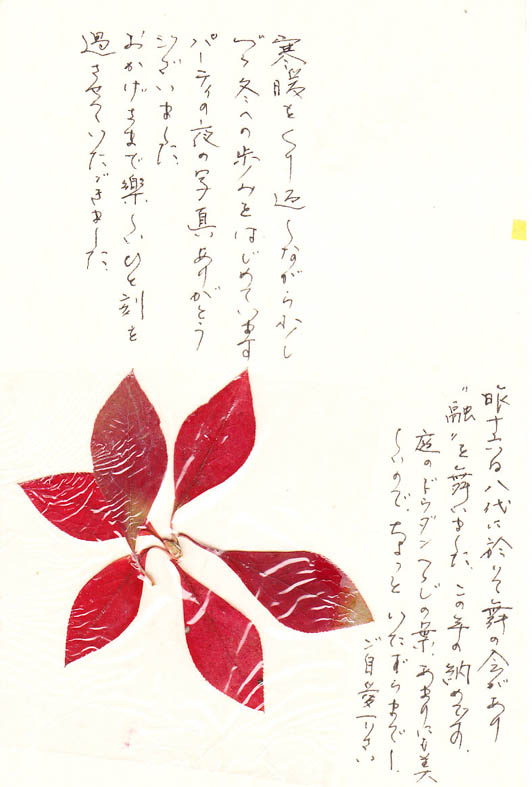 寒暖をくり返しながら少し
づつ冬への歩みをはじめています
パーティの夜の写真ありがとう
ございました。
おかげさまで楽しいひと刻を
過させていただきました
昨十六日八代に於いて舞の会があり
"融"を舞いました。この年の納めです。
庭のドウダンつつじの葉、あまりにも美
しいので、ちょっといたずらまでに。
ご自愛下さい